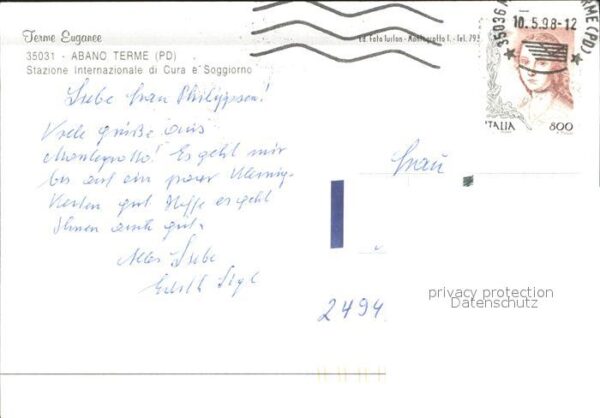 Terme Euganee
35031 - ABANO TERME (PD)
Stazione Internazionale di Cura e Soggiorno
Ed. Foto Turlon - Montegrotto T. - Tel. 793
35036 M TERME (PD)
10.5.98-12
ITALIA 800
Liebe Frau Philippson!
Viele Grüße aus
Montegrotto! Es geht mir
bis auf ein paar Wenig-
keiten gut. Hoffe es geht
Ihnen auch gut.
Alles Liebe
Edith
Frau
2494
privacy protection
Datenschutz